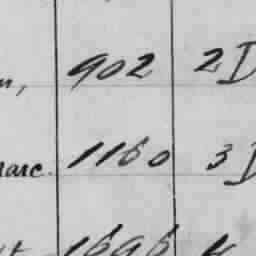 n, 902 2 D
narc. 1160 3 D
1696 4